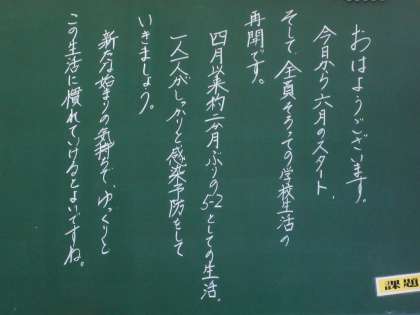 おはようございます。
今日から六月のスタート、
そして、全員そろっての学校生活の
再開です。
四月以来約二か月ぶりの5-2としての生活。
一人一人がしっかりと感染予防をして
いきましょう。
新たな始まりの気持ちで、ゆっくりと
この生活に慣れていけるとよいですね。
課題